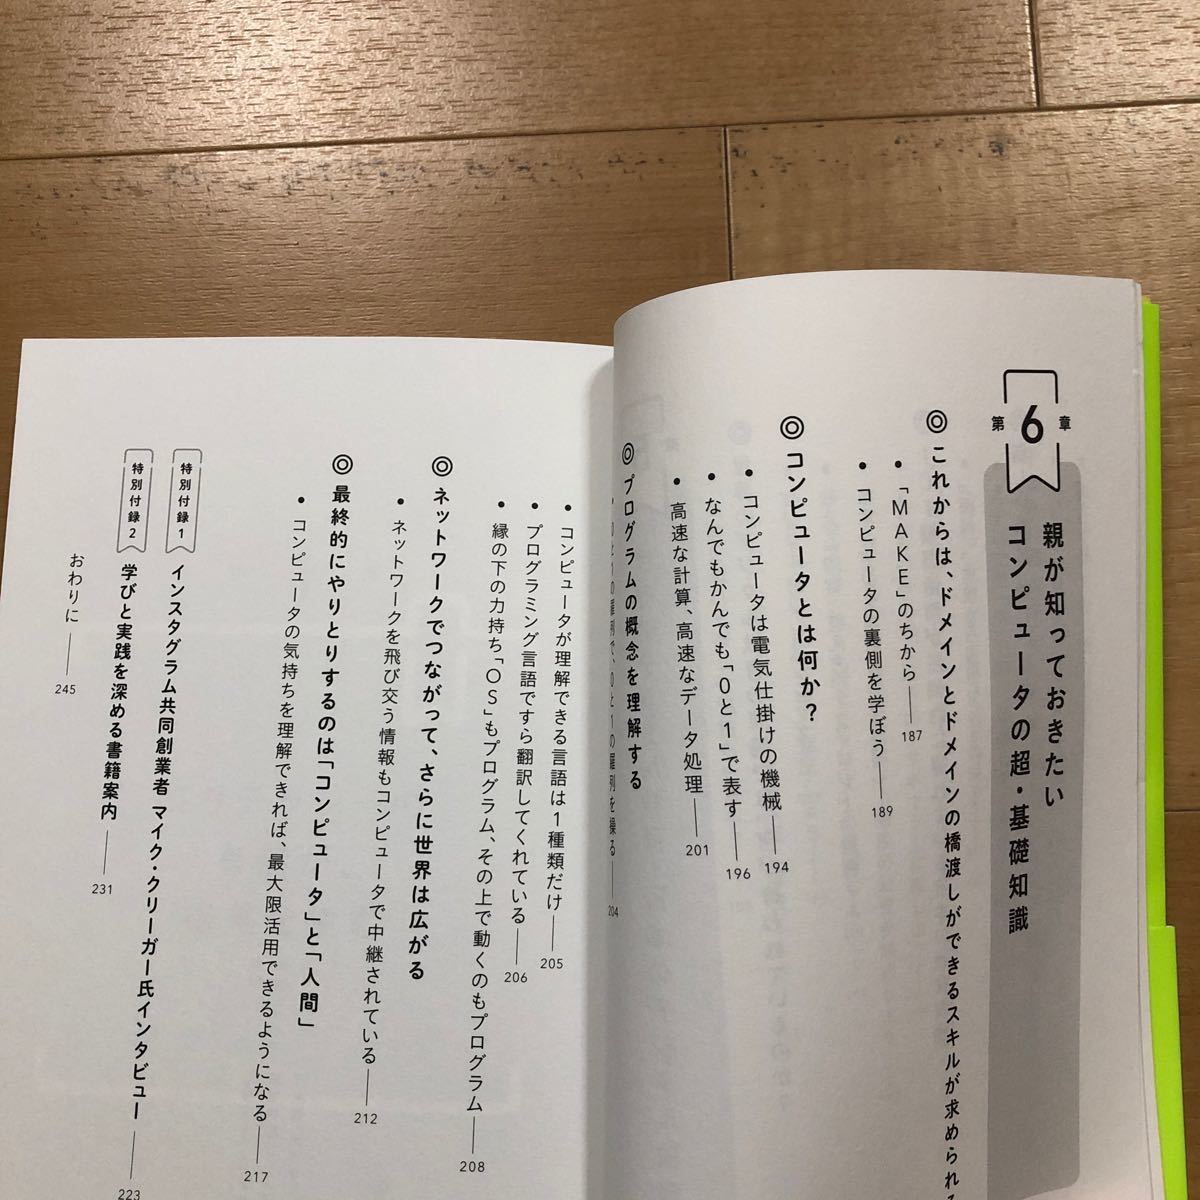 第6章
親が知っておきたい
コンピュータの超・基礎知識
◎これからは、ドメインとドメインの橋渡しができるスキルが求められる
●「MAKE」のちから――187
●コンピュータの裏側を学ぼう――189
◎コンピュータとは何か？
●コンピュータは電気仕掛けの機械――194
●なんでもかんでも「0と1」で表す――196
●高速な計算、高速なデータ処理――201
◎プログラムの概念を理解する
●0と1の羅列で、0と1の羅列を操る――204
●コンピュータが理解できる言語は1種類だけ――205
●プログラミング言語ですら翻訳してくれている――206
●縁の下の力持ち「OS」もプログラム、その上で動くのもプログラム――208
◎ネットワークでつながって、さらに世界は広がる
●ネットワークを飛び交う情報もコンピュータで中継されている――212
◎最終的にやりとりするのは「コンピュータ」と「人間」
●コンピュータの気持ちを理解できれば、最大限活用できるようになる――217
特別付録1 インスタグラム共同創業者 マイク・クリーガー氏インタビュー――223
特別付録2 学びと実践を深める書籍案内――231
おわりに――245